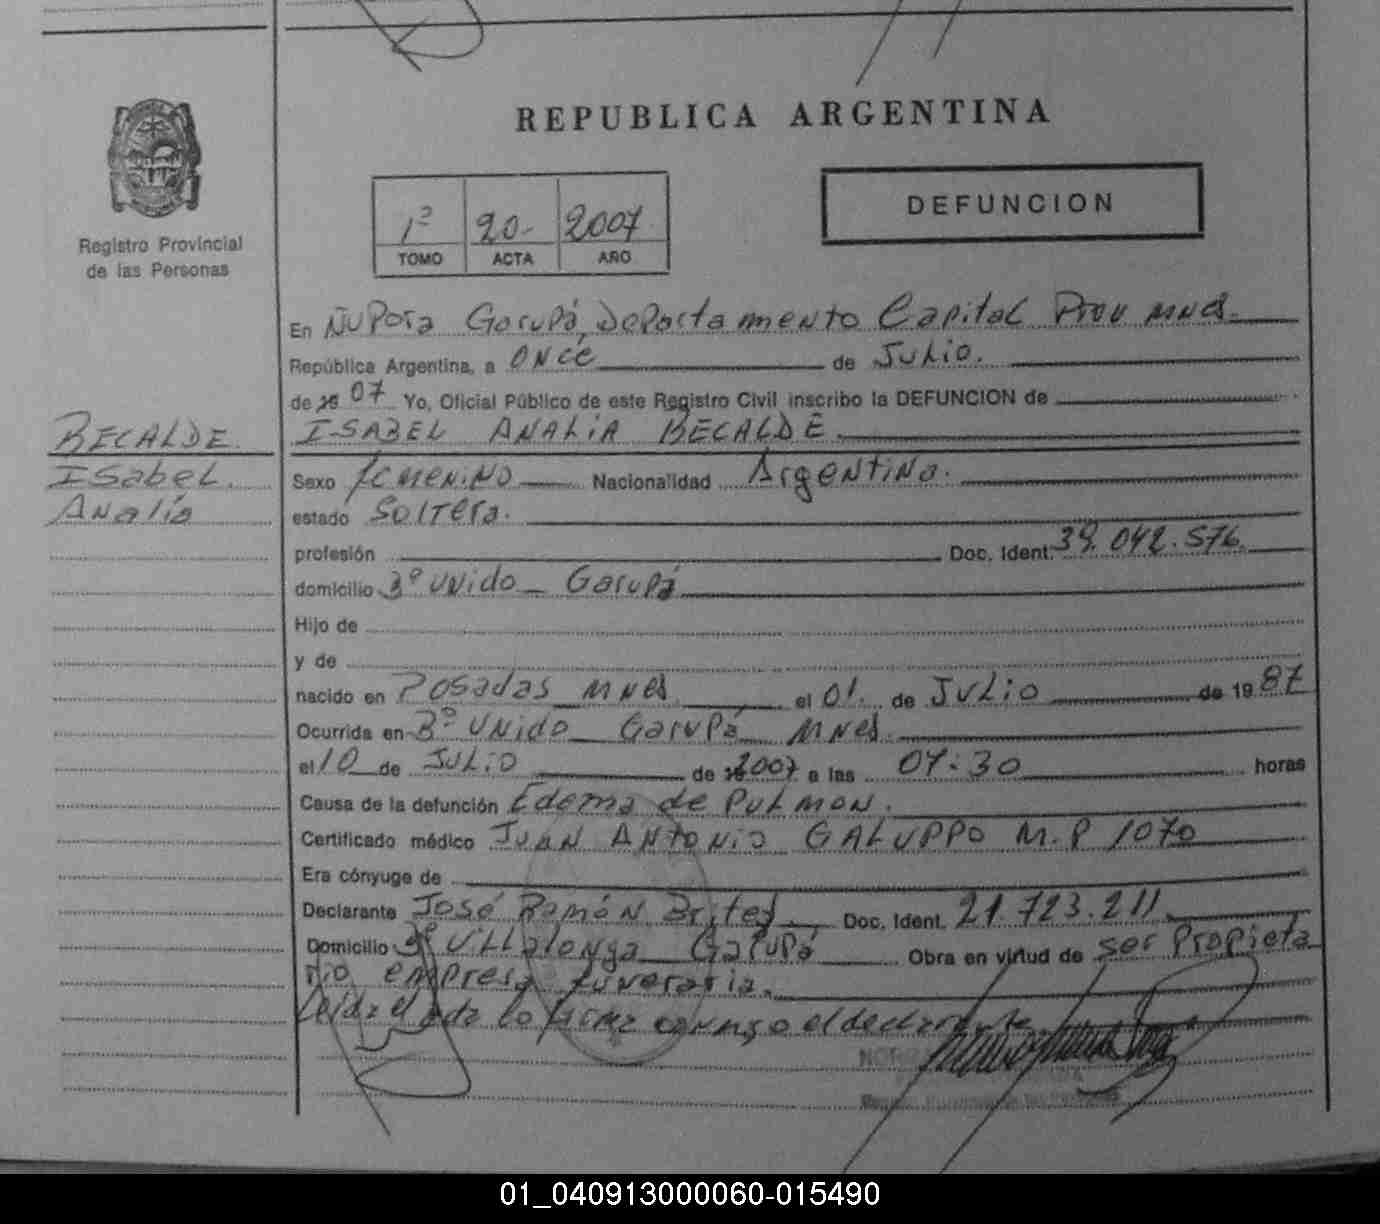 REPUBLICA ARGENTINA
Registro Provincial
de las Personas
1º 20- 2007
TOMO ACTA AÑO
DEFUNCION
En Ñu Porá Garupá, Departamento Capital Prov mnes.
República Argentina, a Once de Julio.
de 07 Yo, Oficial Público de este Registro Civil inscribo la DEFUNCION de
BECALDE
Isabel
Analía
ISABEL ANALIA BECALDE
Sexo femenino Nacionalidad Argentina.
estado Soltera.
profesión Doc. Ident. 39.042.576
domicilio 3º unido - Garupá
Hijo de
y de
nacido en Posadas mnes el 01. de Julio de 19 87
Ocurrida en 3º unido Garupá mnes.
el 10 de Julio de 2007 a las 07:30 horas
Causa de la defunción Edema de Pulmon.
Certificado médico JUAN ANTONIO GALUPPO M.P 1070
Era cónyuge de
Declarante José Ramón Britez Doc. Ident. 21.723.211
Domicilio Bº Villalonga Garupá Obra en virtud de ser Propieta
rio empresa funeraria.
Leída el acta lo firma conmigo el declarante
01_040913000060-015490